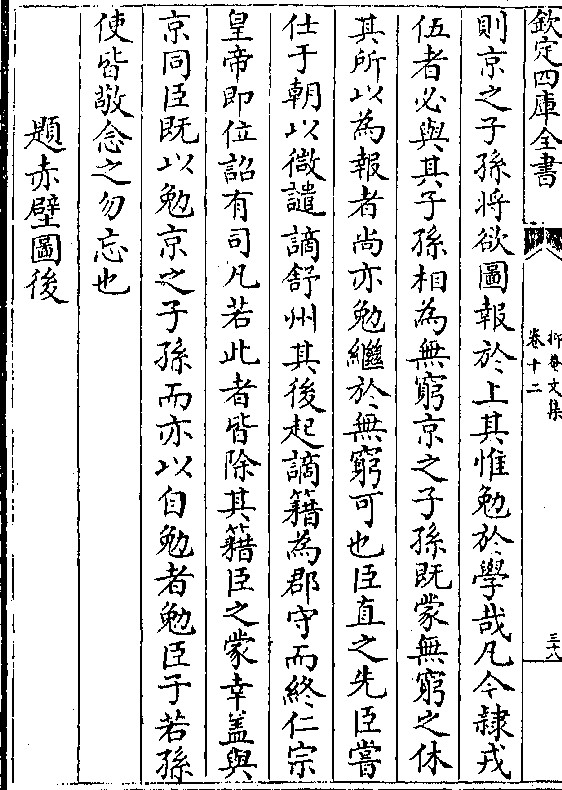 欽定四庫全書
抑菴文集
卷十二
三十八
則京之子孫將欲圖報於上其惟勉於學哉凡今隸戎
伍者必與其子孫相為無窮京之子孫既蒙無窮之休
其所以為報者尚亦勉繼於無窮可也臣直之先臣嘗
仕于朝以微譴謫舒州其後起謫籍為郡守而終仁宗
皇帝即位詔有司凡若此者皆除其籍臣之蒙幸葢與
京同臣既以勉京之子孫而亦以自勉者勉臣子若孫
使皆敬念之勿忘也
題赤壁圖後